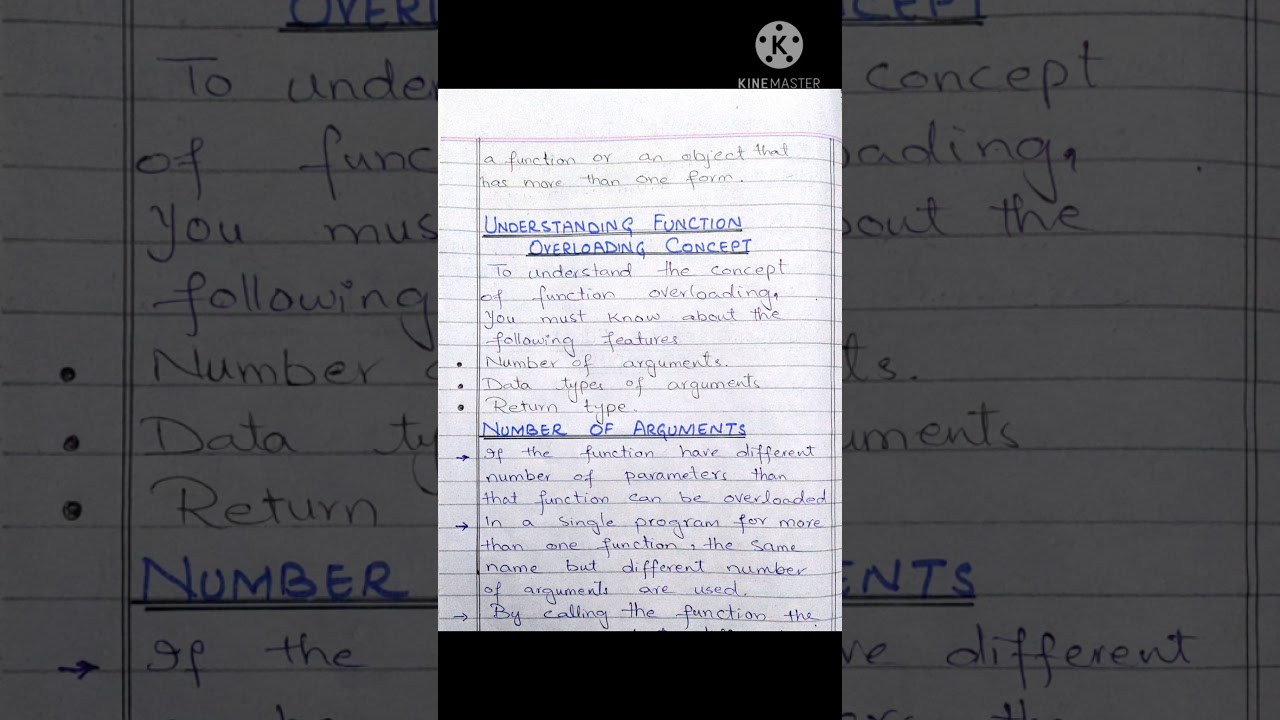 KINEMASTER
a function or an object that
has more than one form.
UNDERSTANDING FUNCTION
OVERLOADING CONCEPT
To understand the concept
of function overloading,
you must know about the
following features
• Number of arguments.
• Data types of arguments
• Return type.
NUMBER OF ARGUMENTS
→ If the function have different
number of parameters than
that function can be overloaded
→ In a single program for more
than one function, the same
name but different number
of arguments are used.
→ By calling the function the